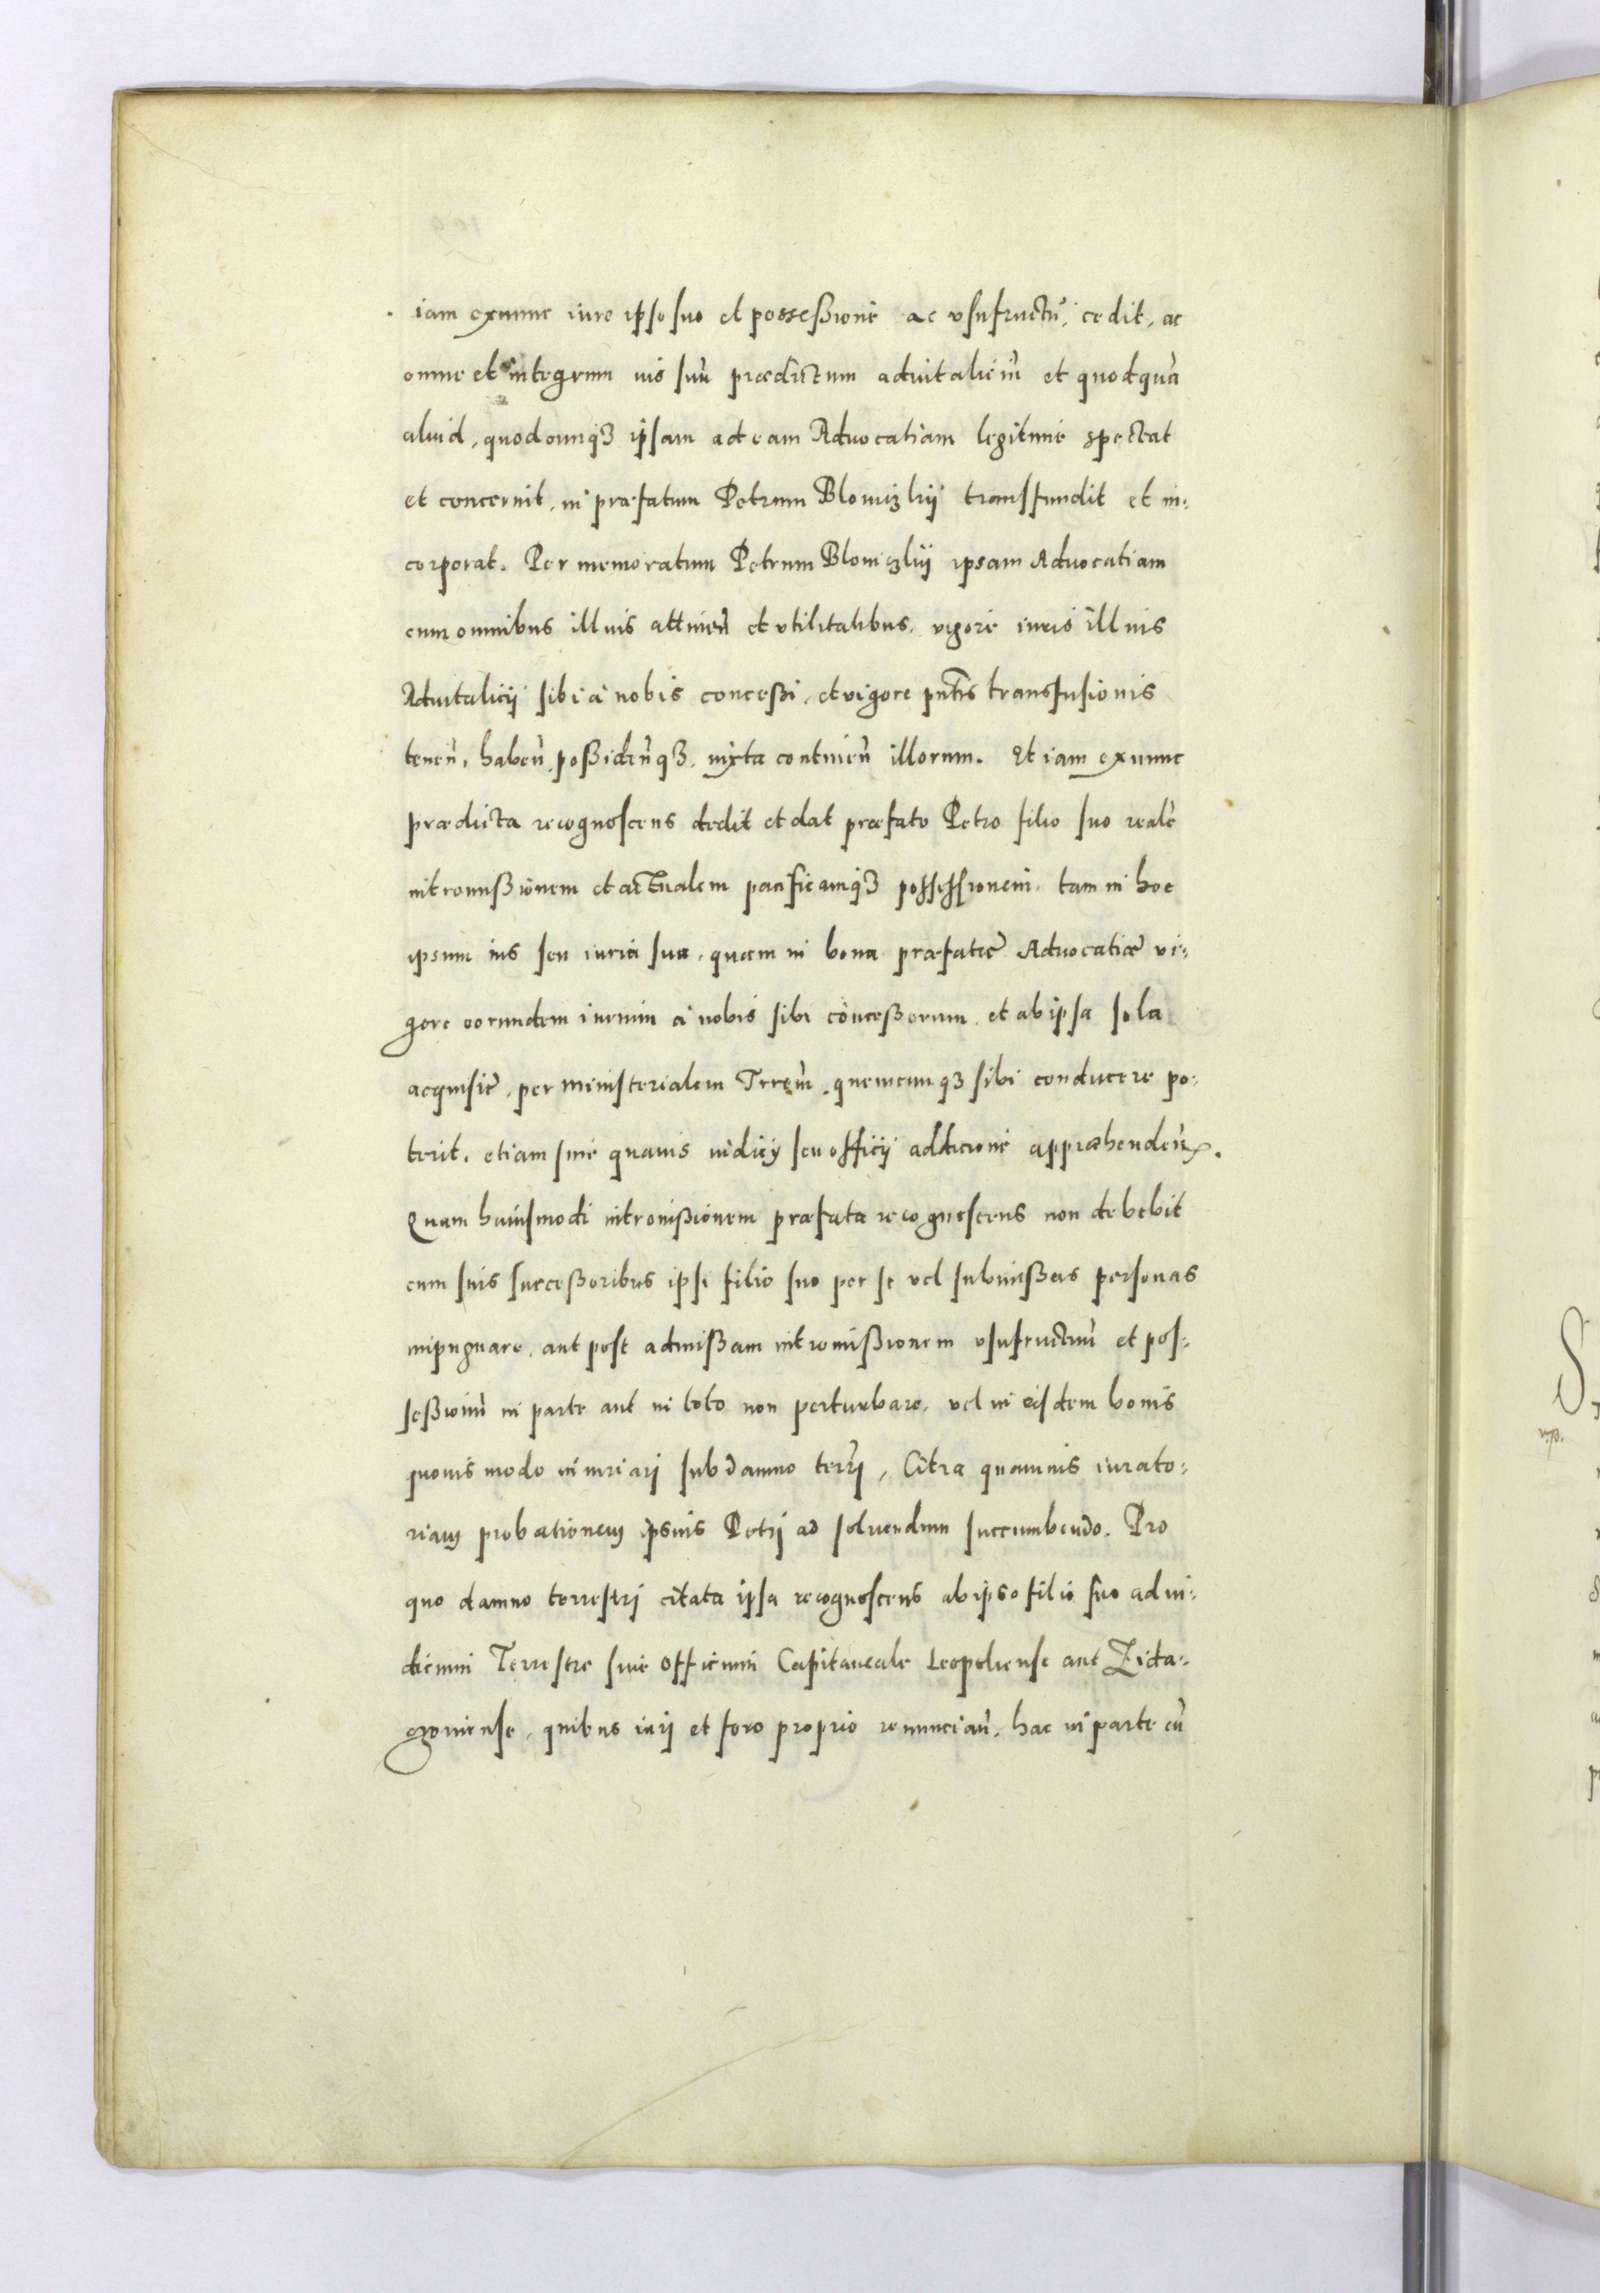 iam exnunc iure ipso suo et possessione ac vsufructu, cedit, ac
omne et integrum ius suū praedictum aduitaliciū et quodquā
aliud, quodcunqꝫ ipsam ad eam Aduocatiam legitime spectat
et concernit, in praefatum Petrum Blomizkij transfundit et in-
corporat. Per memoratum Petrum Blomizkij ipsam Aduocatiam
cum omnibus illius attineñ et vtilitatibus, vigore iuris illius
Aduitalicij sibi a nobis concessi, et vigore pñtis transfusionis
teneñ, habeñ possideñqꝫ, iuxta contineñ illorum. Et iam exnunc
praedicta recognoscens dedit et dat praefato Petro filio suo realē
intromissionem et actualem pacificamqꝫ possessionem, tam in hoc
ipsum ius seu iura sua, quam in bona praefatae Aduocatiae vi-
gore eorundem iurium a nobis sibi concessorum, et ab ipsa sola
acquisite, per ministerialem Trrem, quemcunqꝫ sibi conducere po-
terit, etiam sine quauis iudicij seu officij additione appraehendeñ.
Quam huiusmodi intromissionem praefata recognoscens non debebit
cum suis successoribus ipsi filio suo per se vel submissas personas
impugnare, aut post admissam intromissionem vsufructuū et pos-
sessionū in parte aut in toto non perturbare, vel in eisdem bonis
quouis modo iniuriari sub damno terri, Citra quamuis iurato-
riam probationem ipsius Petri ad soluendum succumbendo. Pro
quo damno terrestri citata ipsa recognoscens ab ipso filio suo ad iu-
dicium Terrestre siue officium Capitaneale Leopoliense aut Zida-
czouiense, quibus iuri et foro proprio renuncian̄, hac in parte cū